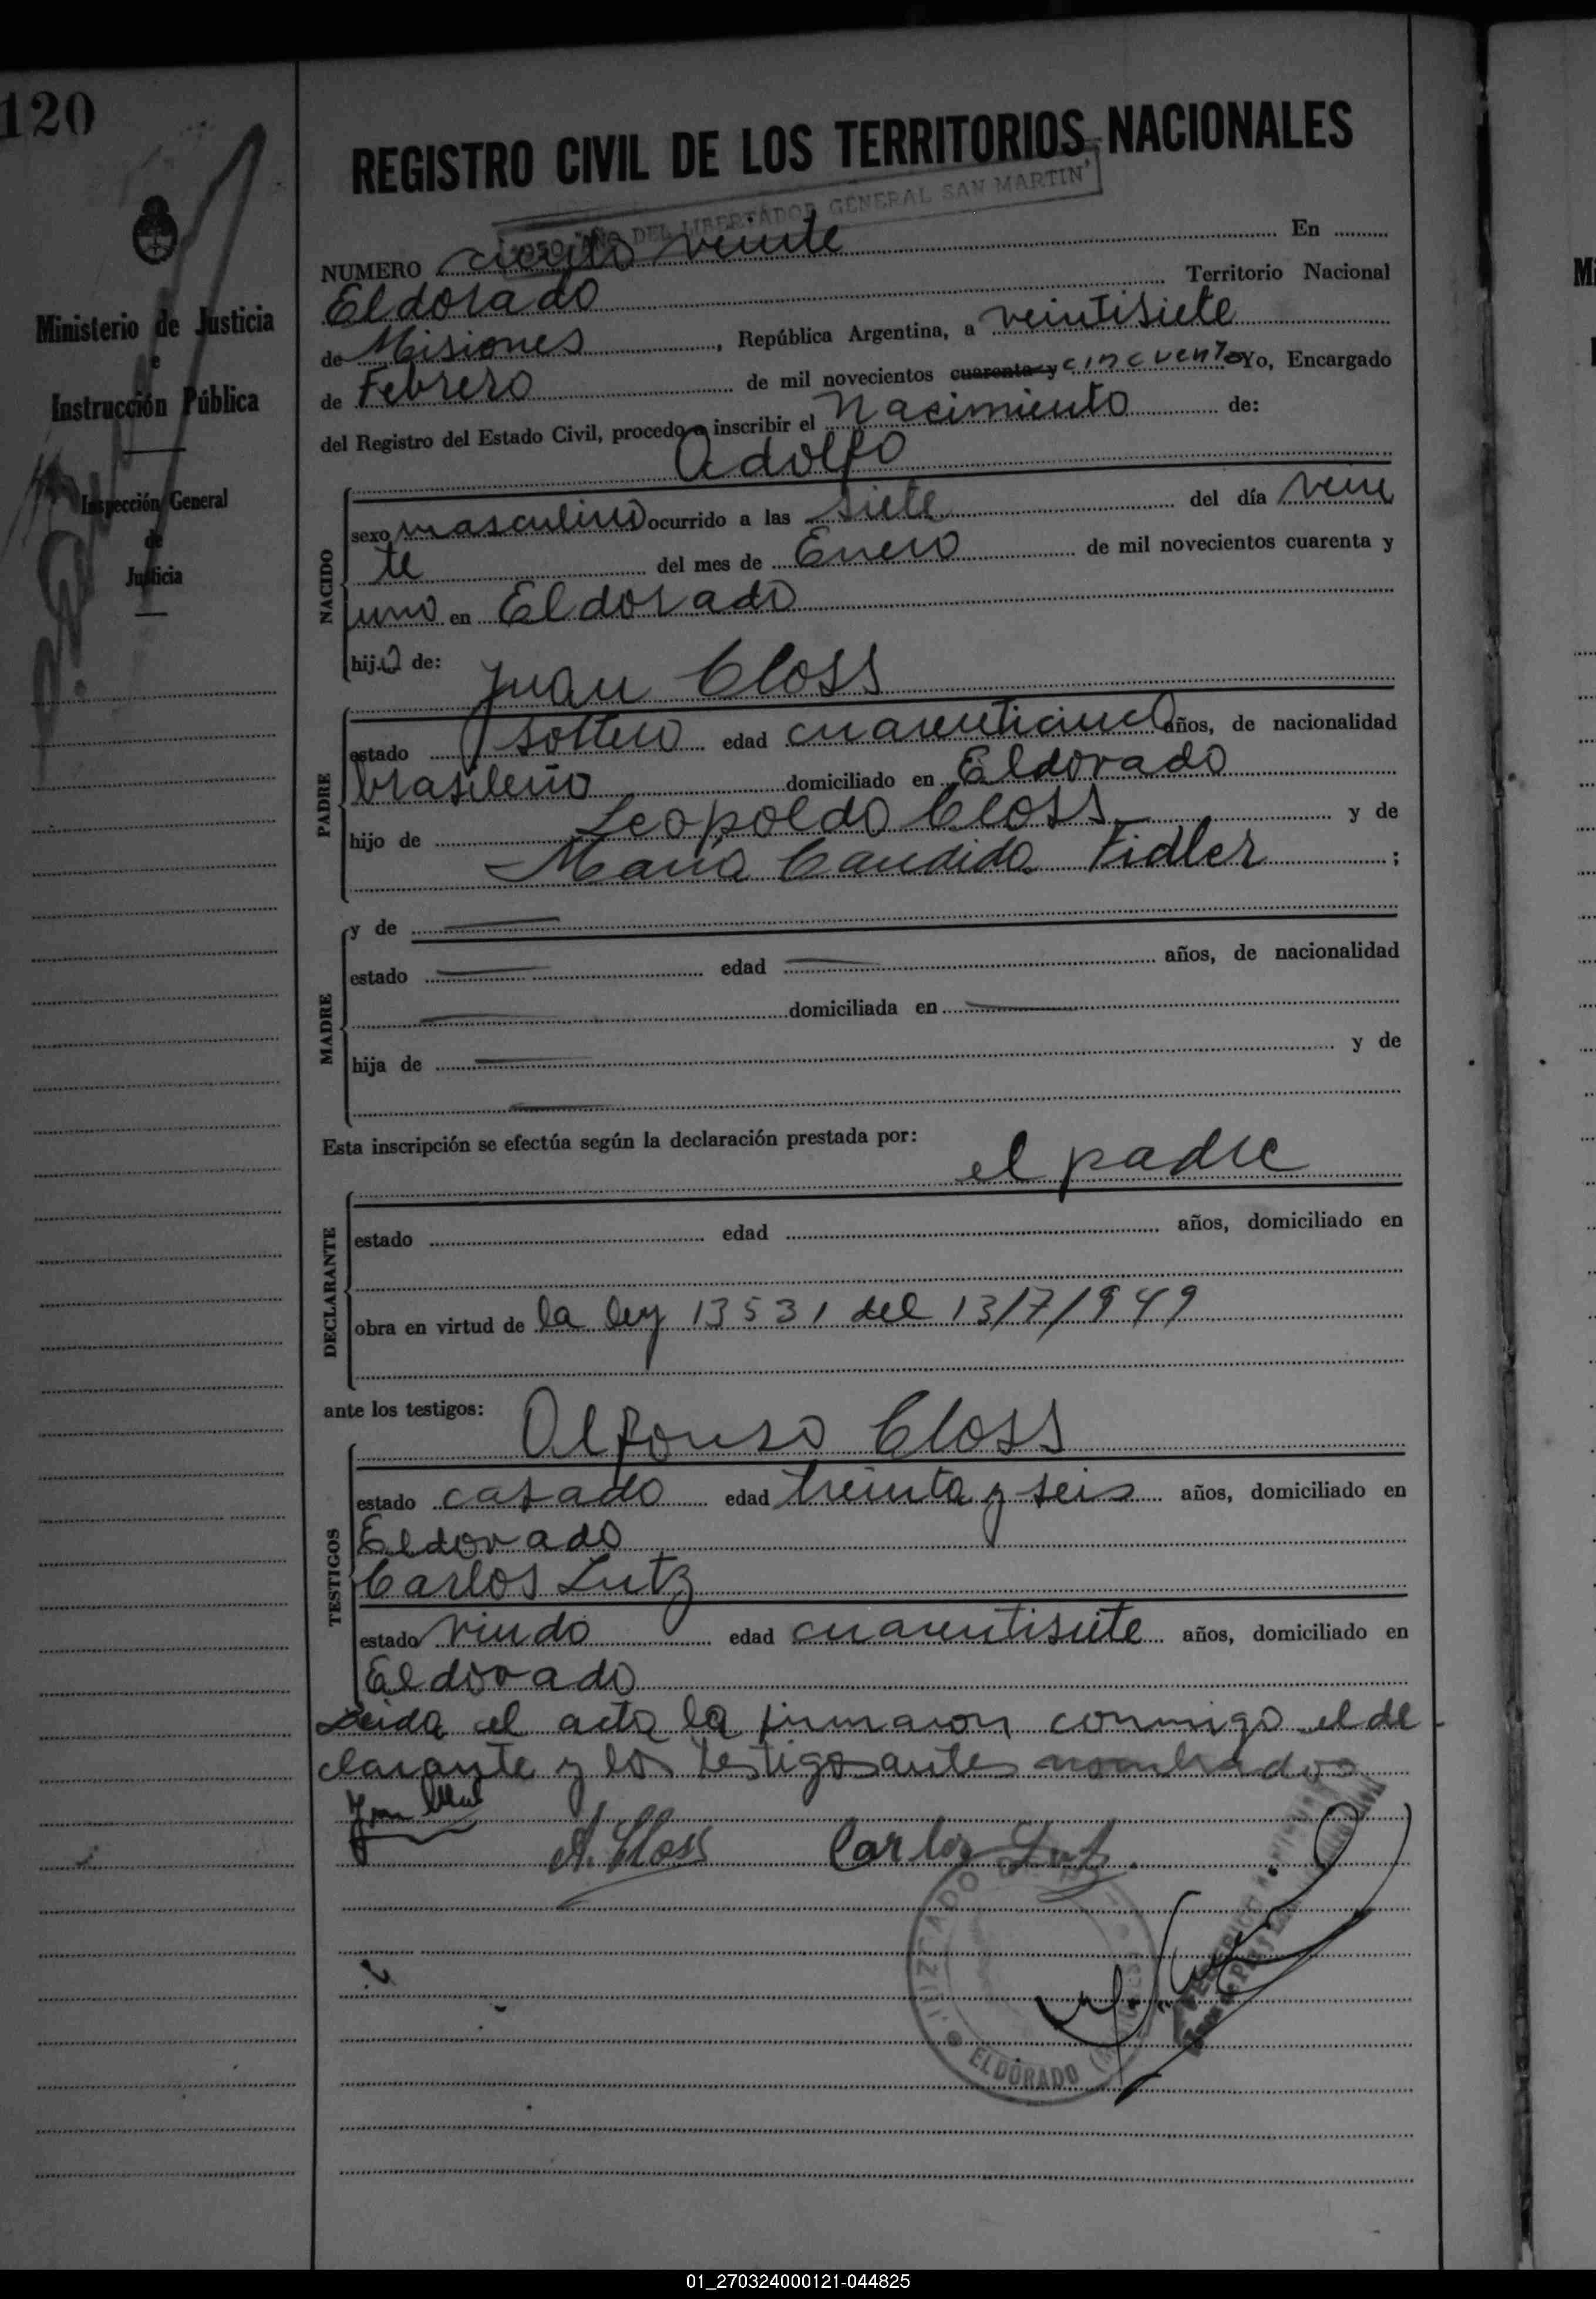 120
REGISTRO CIVIL DE LOS TERRITORIOS NACIONALES
1950 "AÑO DEL LIBERTADOR GENERAL SAN MARTIN"
Ministerio de Justicia
e
Instrucción Pública
Inspección General
de
Justicia
NUMERO ciento veinte En
Eldorado Territorio Nacional
de Misiones, República Argentina, a veintisiete
de Febrero de mil novecientos cuarenta y cincuenta Yo, Encargado
del Registro del Estado Civil, procedo a inscribir el Nacimiento de:
Adolfo
NACIDO
sexo masculino ocurrido a las siete del día vein
te del mes de Enero de mil novecientos cuarenta y
uno en Eldorado
hijo de:
Juan Closs
PADRE
estado soltero edad cuarenticinco años, de nacionalidad
brasileño domiciliado en Eldorado
hijo de Leopoldo Closs y de
Maria Candida Fidler ;
MADRE
y de
estado edad años, de nacionalidad
domiciliada en
hija de y de
Esta inscripción se efectúa según la declaración prestada por:
el padre
DECLARANTE
estado edad años, domiciliado en
obra en virtud de la ley 13531 del 13/7/949
ante los testigos:
Alfonso Closs
TESTIGOS
estado casado edad treinta y seis años, domiciliado en
Eldorado
Carlos Lutz
estado viudo edad cuarentisiete años, domiciliado en
Eldorado
Leida el acta la firmaron conmigo el de
clarante y los testigos antes nombrados
A. Closs Carlos Lutz
ELDORADO
01_270324000121-044825